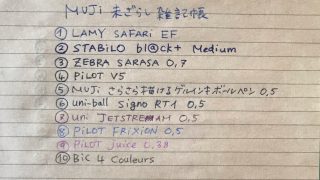 MUJI 未ざらし雑記帳
① LAMY SAFARI EF
② STABILO bl@ck+ Medium
③ ZEBRA SARASA 0,7
④ PILOT V5
⑤ MUJI さらさら描けるゲルインキボールペン 0,5
⑥ uni-ball Signo RT1 0,5
⑦ uni JETSTREAM 0,5
⑧ PILOT FRIXION 0,5
⑨ PILOT juice 0,38
⑩ BiC 4 Couleurs